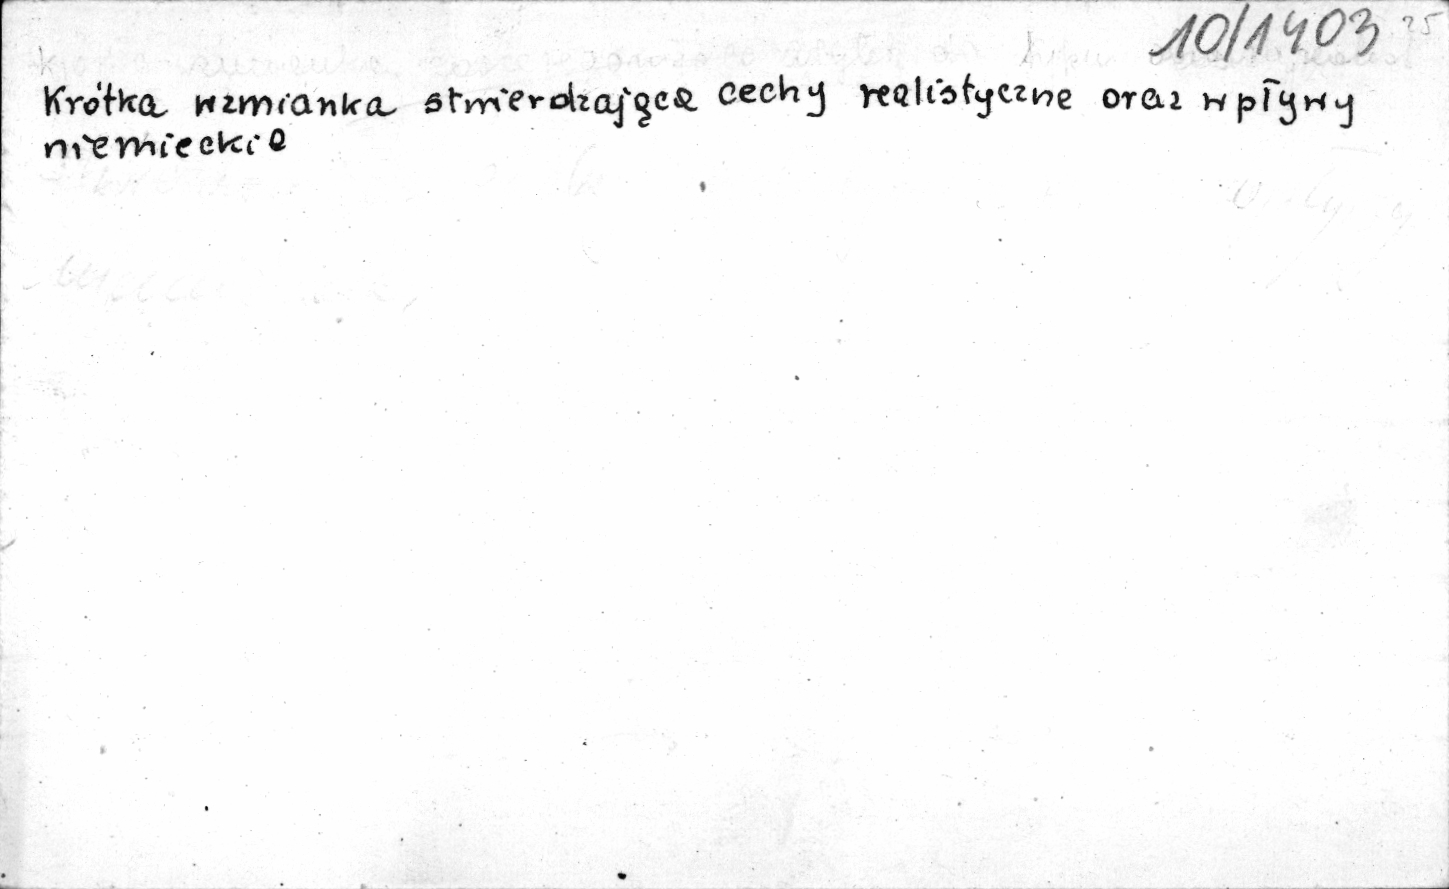 10/1403 25
Krótka wzmianka stwierdzająca cechy realistyczne oraz wpływy
niemieckie